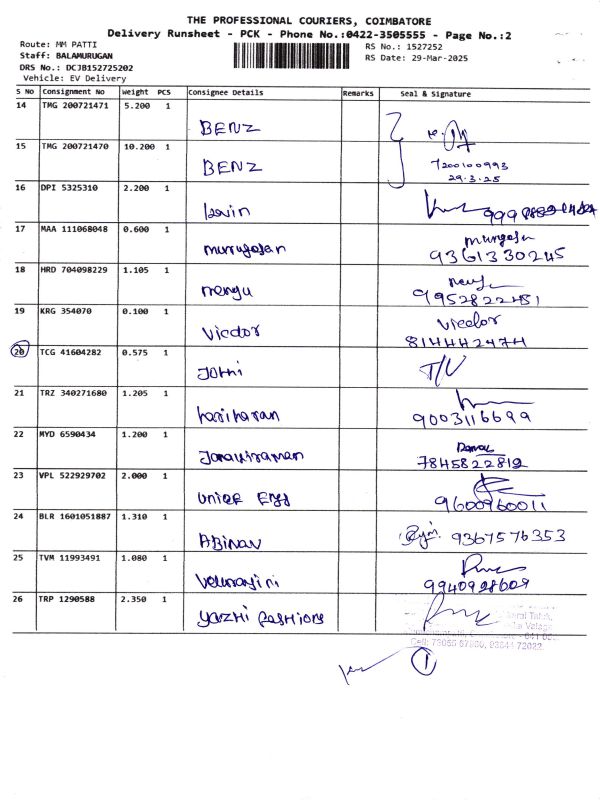 THE PROFESSIONAL COURIERS, COIMBATORE
Delivery Runsheet - PCK - Phone No.:0422-3505555 - Page No.:2
Route: MM PATTI
RS No.: 1527252
Staff: BALAMURUGAN
RS Date: 29-Mar-2025
DRS No.: DCJB152725202
Vehicle: EV Delivery
S No Consignment No Weight PCS Consignee Details Remarks Seal & Signature
14 TMG 200721471 5.200 1 BENZ
15 TMG 200721470 10.200 1 BENZ 7200100993
29.3.25
16 DPI 5325310 2.200 1
17 MAA 111068048 0.600 1 murugesan murugesan
9361330245
18 HRD 704098229 1.105 1
9952822451
19 KRG 354070 0.100 1 Victor Victor
8144442474
20 TCG 41604282 0.575 1 Jothi
21 TRZ 340271680 1.205 1 hariharan
9003116699
22 MYD 6590434 1.200 1
7845822812
23 VPL 522929702 2.000 1
9600960011
24 BLR 1601051887 1.310 1 ABINAV 9367576353
25 TVM 11993491 1.080 1
9940928609
26 TRP 1290588 2.350 1 yazhi fashions
1